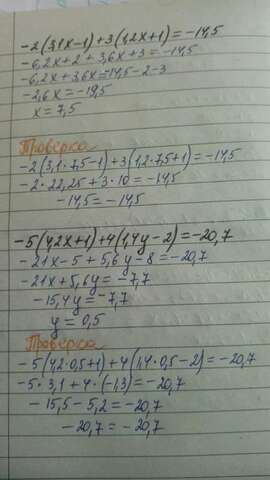 -2(3,1x-1)+3(1,2x+1)=-14,5
-6,2x+2+3,6x+3=-14,5
-6,2x+3,6x=-14,5-2-3
-2,6x=-19,5
x=7,5
Проверка
-2(3,1·7,5-1)+3(1,2·7,5+1)=-14,5
-2·22,25+3·10=-14,5
-14,5=-14,5
-5(4,2x+1)+4(1,4y-2)=-20,7
-21x-5+5,6y-8=-20,7
-21x+5,6y=-7,7
-15,4y=-7,7
y=0,5
Проверка
-5(4,2·0,5+1)+4(1,4·0,5-2)=-20,7
-5·3,1+4·(-1,3)=-20,7
-15,5-5,2=-20,7
-20,7=-20,7